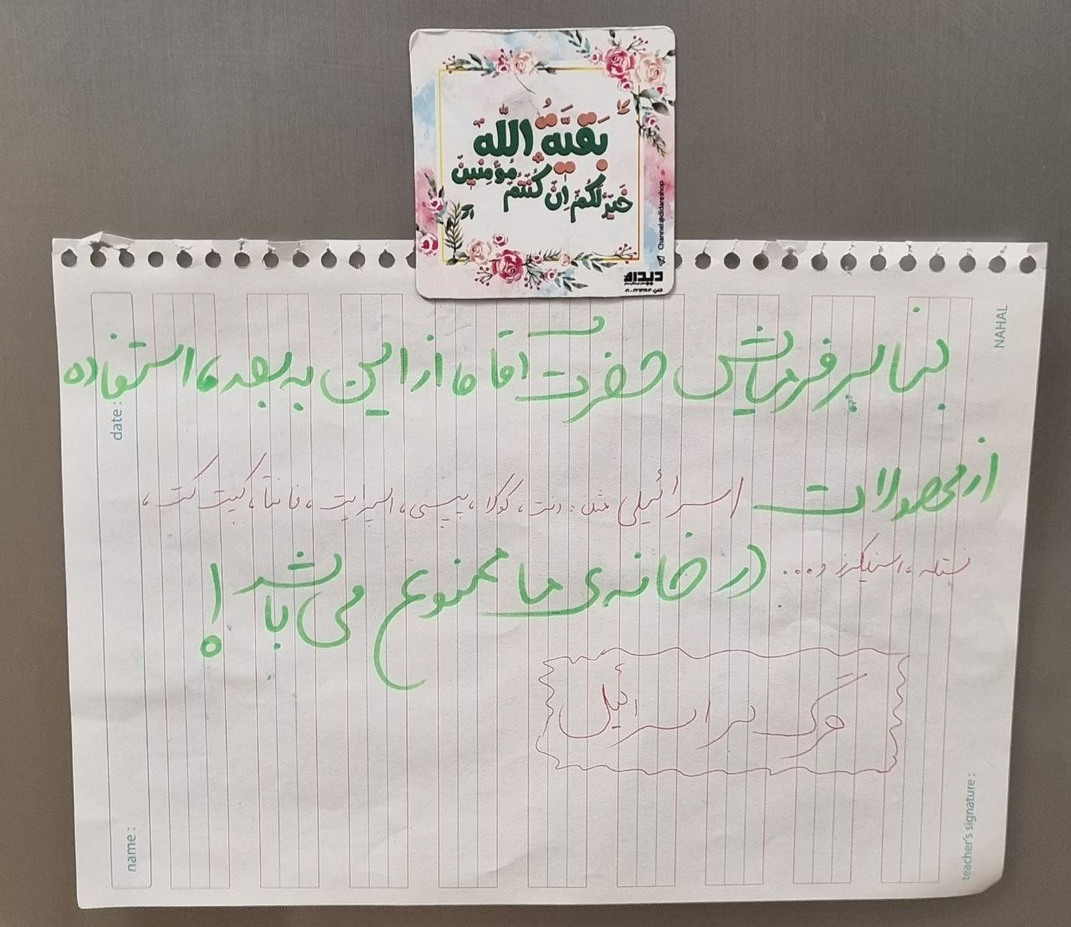 بقیَّةُ اللّٰه
خَیرٌ لَکُم اِن کُنتُم مُؤمِنین
Channel@didareshop
دیدار
NAHAL
بنابر فرمایش حضرت آقا ما از این به بعد، استفاده
date :
از محصولات اسرائیلی مثل: دنت، کوکا، پپسی، اسپرایت، فانتا، کیت کت،
نستله، اسنیکرز و... در خانه‌ی ما ممنوع می باشد!
مرگ بر اسرائیل
name :
teacher's signature :